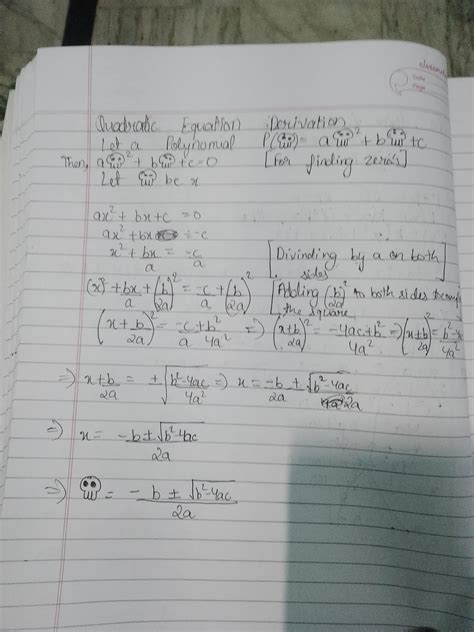 Classmate
Date
Page
Quadratic Equation Derivation
Let a Polynomial P(💀) = a💀² + b💀 + c
Then, a💀² + b💀 + c = 0 [For finding zero's]
Let 💀 be x
ax² + bx + c = 0
ax² + bx = -c
x² + bx/a = -c/a [Divinding by a on both sides]
(x)² + bx/a + (b/2a)² = -c/a + (b/2a)² [Adding (b/2a)² to both sides the square]
(x + b/2a)² = -c/a + b²/4a² => (x+b/2a)² = -4ac+b²/4a² => (x+b/2a)² = b²-4
=> x+b/2a = ±√(b²-4ac/4a²) => x = -b/2a ± √(b²-4ac)/2a
=> x = -b±√(b²-4ac)/2a
=> 💀 = -b ± √(b²-4ac)/2a